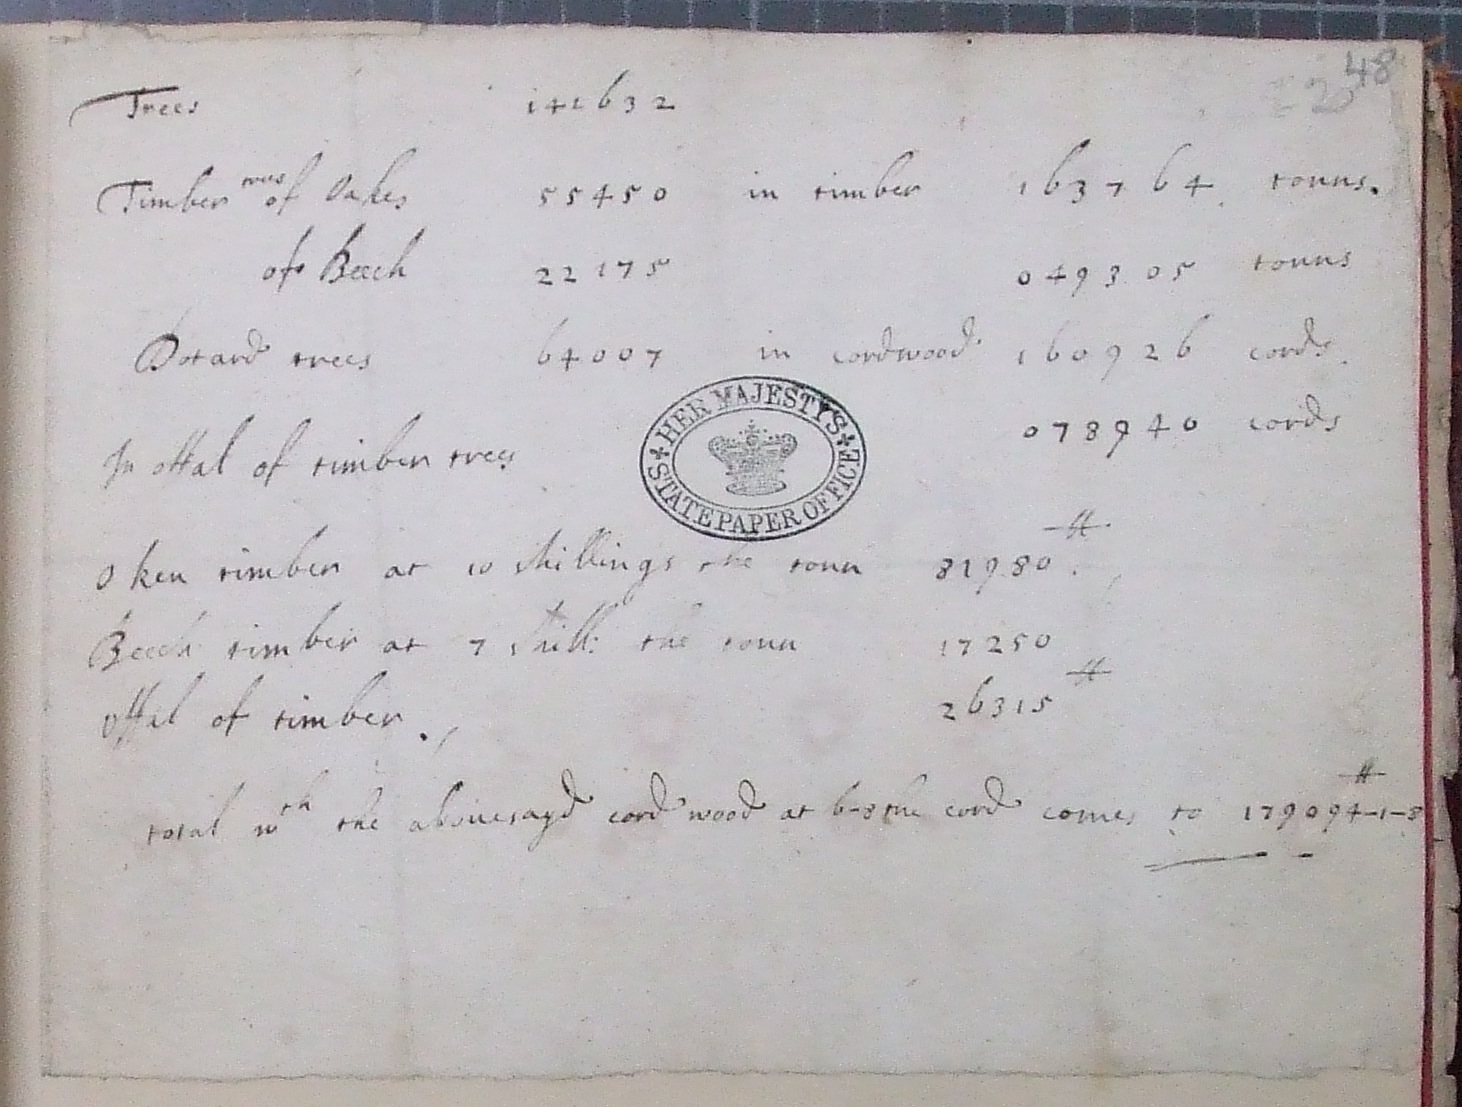 48
Trees 141632
Timber trees of Oakes 55450 in timber 163764 tonns.
of Beech 22175 049305 tonns
Dotard trees 64007 in cordwood 160926 cords.
In offal of timber trees 078940 cords
HER MAJESTY'S STATE PAPER OFFICE
Oken timber at 10 shillings the tonn 81980 ll.
Beech timber at 7 shill: the tonn 17250
offal of timber. 26315 ll
total wth the abovesayd cord wood at 6-8 the cord comes to 179094 ll-1-8